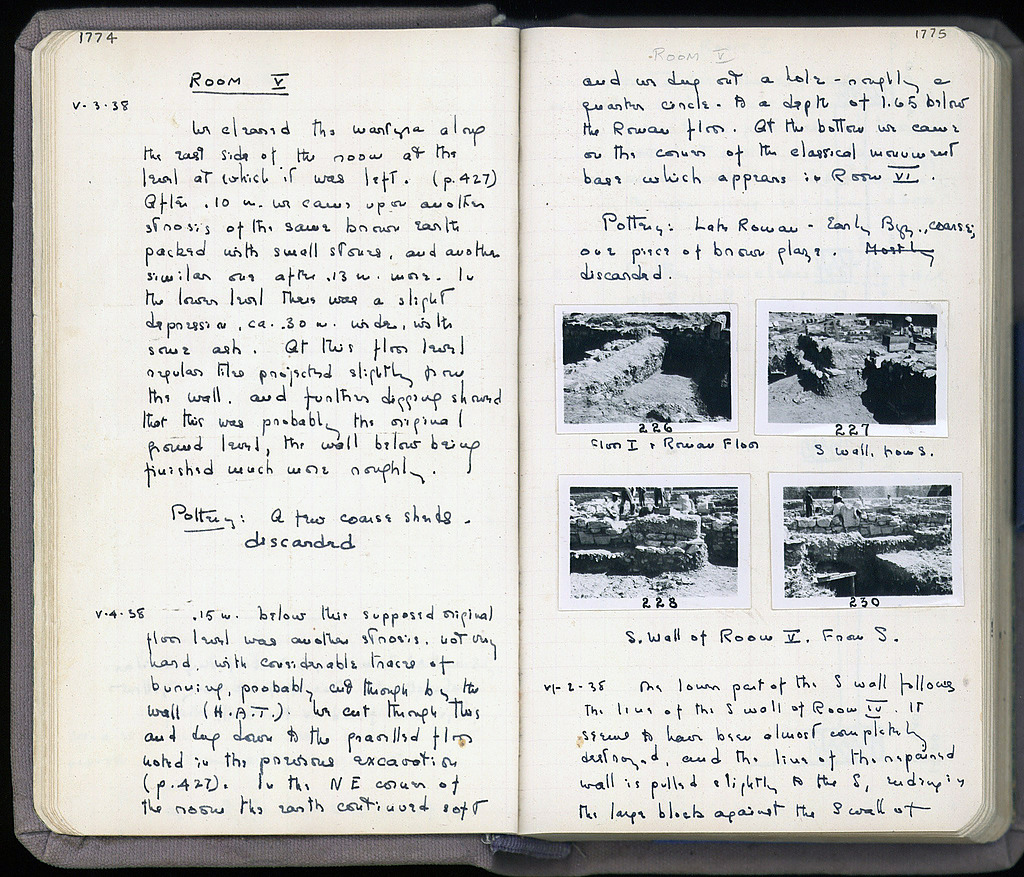 1774
ROOM V
V-3-38
We cleared the martyra along
the east side of the room at the
level at which it was left. (p.427)
After .10 m. we came upon another
strosis of the same brown earth
packed with small stones, and another
similar one after .13 m. more. In
the lower level there was a slight
depression, ca. .30 m. wide, with
some ash. At this floor level
regular tile projected slightly from
the wall, and further digging showed
that this was probably the original
ground level, the wall below being
finished much more roughly.
Pottery: A few coarse sherds.
discarded
V-4-38 .15 m. below this supposed original
floor level was another strosis, not very
hard, with considerable traces of
burning, probably cut through by the
wall (H.A.T.). We cut through this
and dug down to the gravelled floor
noted in the previous excavation
(p.427). In the NE corner of
the room the earth continued soft
1775
ROOM V
and we dug out a hole - roughly a
quarter circle - to a depth of 1.65 below
the Roman floor. At the bottom we came
on the corner of the classical monument
base which appears in Room VI.
Pottery: Late Roman - Early Byz., coarse;
one piece of brown glaze. Mostly
discarded.
226
Floor I + Roman Floor
227
S wall, from S.
228
230
S. Wall of Room V. From S.
VI-2-38 The lower part of the S wall follows
the line of the S wall of Room IV. It
seems to have been almost completely
destroyed, and the line of the repaired
wall is pulled slightly to the S, ending in
the large blocks against the S wall of